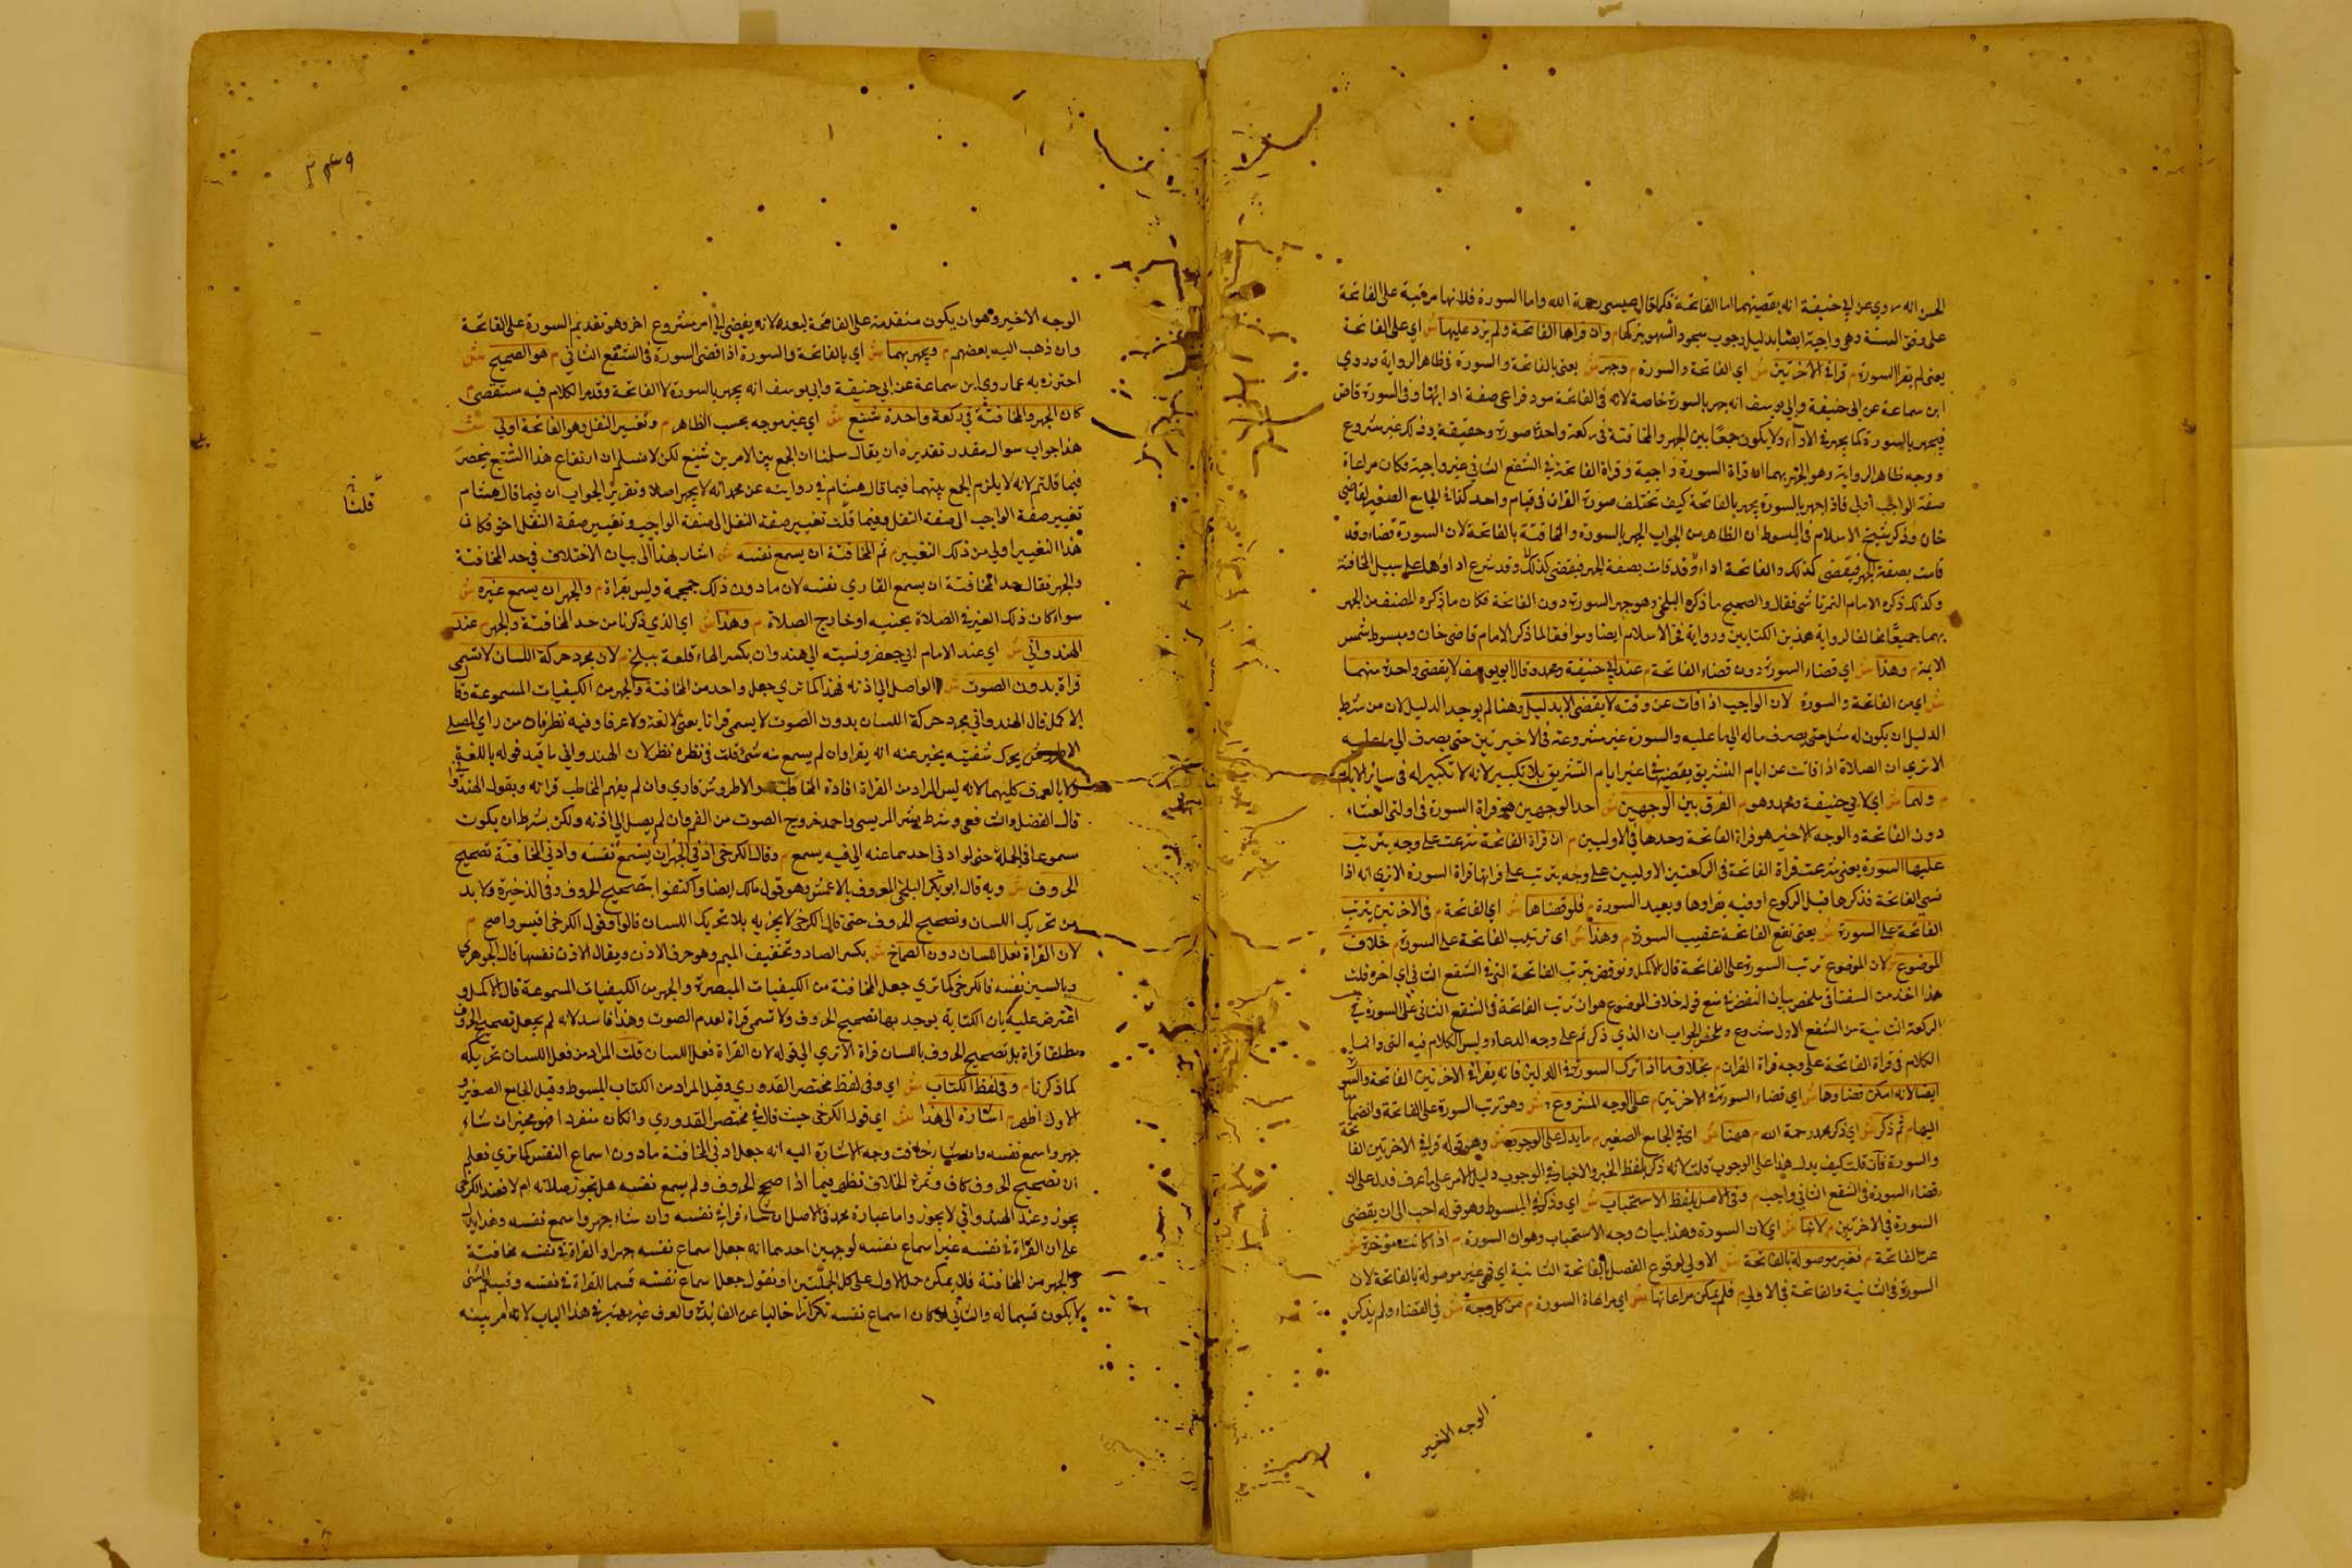 الحسن انه روي عن ابي حنيفة انه يقضيهما اما الفاتحة فكما قال عيسى رحمة الله واما السورة فلانها مرتبة على الفاتحة
على وفق السنة وهي واجبة ايضا بدليل وجوب سجود السهو بتركها م وان قرا الفاتحة ولم يزد عليها ش اي على الفاتحة
يعني لم يقرا السورة م قرا في الاخرتين ش اي الفاتحة والسورة م وجهر ش يعني بالفاتحة والسورة في ظاهر الرواية وروي
ابن سماعة عن ابي حنيفة وابي يوسف انه جهر بالسورة خاصة لانه في الفاتحة مود فراعى صفة ادائها وفي السورة قاض
فيجهر بالسورة كما يجهر في الاداء ولا يكون جمعا بين الجهر والمخافتة في ركعة واحدة صورة وحقيقة وذلك غير مشروع
ووجه ظاهر الرواية وهو الجهر بهما ان قراة السورة واجبة وقراة الفاتحة في الشفع الثاني غير واجبة فكان مراعاة
صفة الواجب اولى فاذا جهر بالسورة يجهر بالفاتحة كيف تختلف صورة القران في قيام واحد كذا في الجامع الصغير لقاضي
خان وذكر شيخ الاسلام في المبسوط ان الظاهر من الجواب الجهر بالسورة والمخافتة بالفاتحة لان السورة قضاء وقد
فاتت بصفة الجهر فيقضى كذلك والفاتحة اداء وقد شرع اداوها على سبيل المخافتة
وكذلك ذكره الامام التمرتاشي فقال والصحيح ما ذكره البلخي وهو جهر السورة دون الفاتحة فكان ما ذكره المصنف من الجهر
بهما جميعا مخالفا لرواية هذين الكتابين ورواية فخر الاسلام ايضا وموافقا لما ذكر الامام قاضي خان ومبسوط شمس
الايمة م وهذا ش اي قضاء السورة دون قضاء الفاتحة م عند ابي حنيفة ومحمد وقال ابو يوسف لا يقضي واحدة منهما
ش اي من الفاتحة والسورة لان الواجب اذا فات عن وقته لا يقضى الا بدليل وهنا لم يوجد الدليل لان من شرط
الدليل ان يكون له مثل حتى يصرف ما له الى ما عليه والسورة غير مشروعة في الاخيرتين حتى يصرف الى ما عليه
الا ترى ان الصلاة اذا فاتت عن ايام التشريق يقضيها في غير ايام التشريق بلا تكبير لانه لا تكبير له في ساير الايام
م ولهما ش اي لابي حنيفة ومحمد وهو م الفرق بين الوجهين ش احد الوجهين هو قراة السورة في اولتي العشاء
دون الفاتحة والوجه الاخير هو قراة الفاتحة وحدها في الاوليين م ان قراة الفاتحة شرعت على وجه يترتب
عليها السورة يعني شرعت قراة الفاتحة في الركعتين الاوليين على وجه يترتب على قراتها قراة السورة الا ترى انه اذا
نسي الفاتحة فذكرها قبل الركوع او فيه يقراوها ويعيد السورة م فلو قضاها ش اي الفاتحة م في الاخرتين يترتب
الفاتحة على السورة ش يعني تقع الفاتحة عقيب السورة م وهذا ش اي ترتيب الفاتحة على السورة م خلاف
الموضوع ش لان الموضوع ترتب السورة على الفاتحة قال الاكمل ونوقض بترتب الفاتحة التي في الشفع الثاني الى اخره قلت
هذا اخذه من السغناقي ملخص بيان النقض منع قوله خلاف الموضوع هو ان ترتب الفاتحة في الشفع الثاني على السورة في
الركعة الثانية من الشفع الاول مشروع وملخص الجواب ان الذي ذكرتم على وجه الدعاء وليس الكلام فيه وانما
الكلام في قراة الفاتحة على وجه قراة القران م بخلاف ما اذا ترك السورة في الاوليين فانه يقرا في الاخرتين الفاتحة والسورة
ايضا لانه امكن قضاوها ش اي قضاء السورة في الاخرتين م على الوجه المشروع ش وهو ترتب السورة على الفاتحة وانضمامها
اليها م ثم ذكر ش اي ذكر محمد رحمة الله م ههنا ش اي في الجامع الصغير م ما يدل على الوجوب ش وهو قوله قرا في الاخرتين الفاتحة
والسورة فان قلت كيف يدل هذا على الوجوب قلت لانه ذكر بلفظ الخبر والاخبار في الوجوب دليل الامر على ما عرف فدل على ان
قضاء السورة في الشفع الثاني واجب م وفي الاصل بلفظ الاستحباب ش اي وذكر في المبسوط وهو قوله احب الي ان يقضي
السورة في الاخرتين م لانها ش اي لان السورة وهذا بيان وجه الاستحباب وهو ان السورة م اذا كانت موخرة ش
عن الفاتحة م فغير موصولة بالفاتحة ش الاولى لوقوع الفصل بالفاتحة الثانية اي فهي غير موصولة بالفاتحة لان
السورة في الثانية والفاتحة في الاولى م فلم يمكن مراعاتها ش اي مراعاة السورة م من كل وجه ش في القضاء ولم يذكر
الوجه الاخير
الوجه الاخير وهو ان يكون متقدمة على الفاتحة لبعده لانه يفضي الى امر مشروع اخر وهو تقديم السورة على الفاتحة
وان ذهب اليه بعضهم م ويجهر بهما ش اي بالفاتحة والسورة اذا قضى السورة في الشفع الثاني م هو الصحيح ش
احترز به عما روى ابن سماعة عن ابي حنيفة وابي يوسف انه يجهر بالسورة لا الفاتحة وقد مر الكلام فيه مستقصى م
كان الجهر والمخافتة في ركعة واحدة شنيع ش اي غير موجه بحسب الظاهر م وتغيير النفل وهو الفاتحة اولى ش
هذا جواب سوال مقدر تقديره ان يقال سلمنا ان الجمع بين الامرين شنيع لكن لا نسلم ان ارتفاع هذا الشنيع ينحصر
فيما قلتم لانه لا يلزم الجمع بينهما فيما قال هشام في روايته عن محمد انه لا يجهر اصلا وتقرير الجواب ان فيما قال هشام
تغيير صفة الواجب الى صفة النفل وفيما قلنا تغيير صفة النفل الى صفة الواجب وتغيير صفة النفل اخف فكان
هذا التغيير اولى من ذلك التغيير م ثم المخافتة ان يسمع نفسه ش اشار بهذا الى بيان الاختلاف في حد المخافتة
والجهر فقال حد المخافتة ان يسمع القاري نفسه لان ما دون ذلك جمجمة وليس بقراة م والجهر ان يسمع غيره ش
سواء كان ذلك الغير في الصلاة بجنبه او خارج الصلاة م وهذا ش اي الذي ذكرنا من حد المخافتة والجهر م عند
الهندواني ش اي عند الامام ابي جعفر ونسبته الى هندوان بكسر الهاء قلعة ببلخ م لان مجرد حركة اللسان لا تسمى
قراة بدون الصوت ش الواصل الى اذنه فهذا كما ترى جعل واحد من المخافتة والجهر من الكيفيات المسموعة وقال
الاكمل قال الهندواني مجرد حركة اللسان بدون الصوت لا يسمى قرانا يعني لا لغة ولا عرفا وفيه نظر فان من راى المصلي
الاطروش يحرك شفتيه يخبر عنه انه يقرا وان لم يسمع منه شي قلت في نظره نظر لان الهندواني ما قيد قوله باللغة
ولا بالعرف كليهما لانه ليس المراد من القراة افادة المخاطب والاطروش قاري وان لم يفهم المخاطب قراته وبقول الهندواني
قال الفضلي والشافعي وشرط بشر المريسي واحمد خروج الصوت من الفم وان لم يصل الى اذنه ولكن بشرط ان يكون
مسموعا في الجملة حتى لو ادنى احد سماعنه الى فيه يسمع م وقال الكرخي ادنى الجهر ان يسمع نفسه وادنى المخافتة تصحيح
الحروف ش وبه قال ابو بكر البلخي المعروف بالاعمش وهو قول مالك ايضا واكتفوا بتصحيح الحروف وفي الذخيرة ولا بد
من تحريك اللسان وتصحيح الحروف حتى قال الكرخي لا يجزيه بلا تحريك اللسان قالوا وقول الكرخي اقيس واصح م
لان القراة فعل اللسان دون الصماخ ش بكسر الصاد وتخفيف الميم وهو خرق الاذن ويقال الاذن نفسها قال الجوهري
وبالسين نفسه فالكرخي كما ترى جعل المخافتة من الكيفيات المبصرة والجهر من الكيفيات المسموعة قال الاكمل و
اعترض عليه بان الكتابة يوجد بها تصحيح الحروف ولا تسمى قراة لعدم الصوت وهذا فاسد لانه لم يجعل تصحيح الحروف
مطلقا قراة بل تصحيح الحروف باللسان قراة الا ترى الى قوله لان القراة فعل اللسان قلت المراد من فعل اللسان تحريكه
كما ذكرنا م وفي لفظ الكتاب ش اي وفي لفظ مختصر القدوري وقيل المراد من الكتاب المبسوط وقيل الجامع الصغير و
الاول اظهر م اشارة الى هذا ش اي قول الكرخي حيث قال في مختصر القدوري وان كان منفردا فهو مخير ان شاء
جهر واسمع نفسه وان شاء خافت وجه الاشارة اليه انه جعل ادنى المخافتة ما دون اسماع النفس كما ترى فعلم
ان تصحيح الحروف كاف وثمرة الخلاف تظهر فيما اذا صحح الحروف ولم يسمع نفسه هل تجوز صلاته ام لا فعند الكرخي
يجوز وعند الهندواني لا يجوز واما عبارة محمد في الاصل ان شاء قرا في نفسه وان شاء جهر واسمع نفسه وهذا يدل
على ان القراة في نفسه غير اسماع نفسه لوجهين احدهما انه جعل اسماع نفسه جهرا والقراة في نفسه مخافتة
والجهر من المخافتة فلا يمكن حمل الاول على كل الجلتين او نقول جعل اسماع نفسه قسما للقراة في نفسه وقسيم الشي
لا يكون قسيما له والثاني لو كان اسماع نفسه تكرارا خاليا عن الفائدة والعرف غير معتبر في هذا الباب لانه امر بينه
قلنا